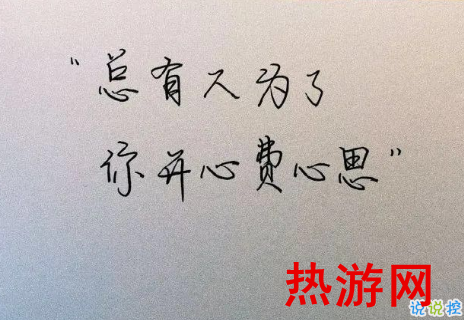 "总有人为了
你开心费心思"
热游网
说说控